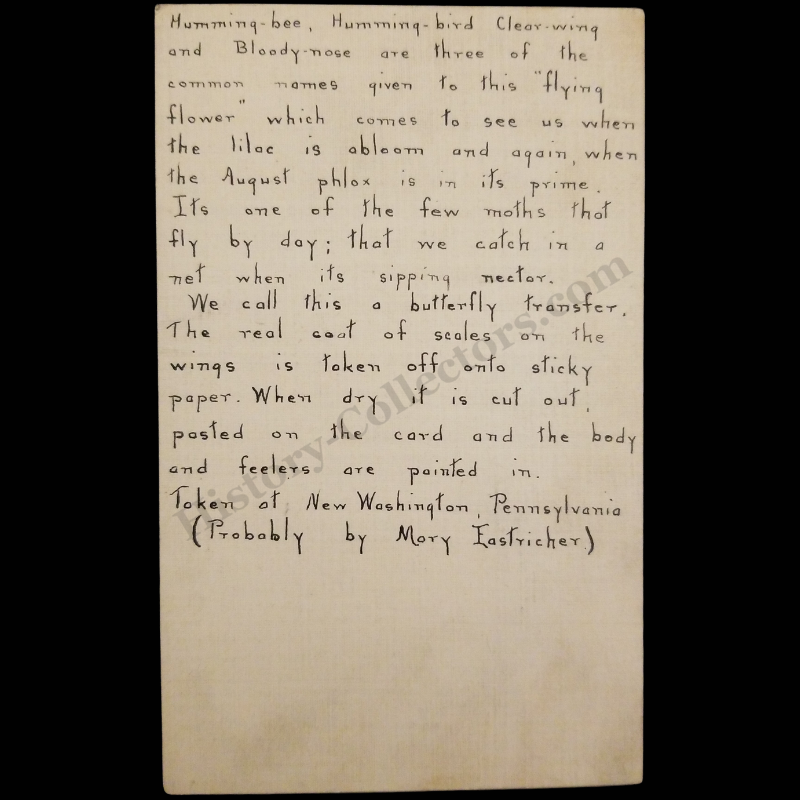 Humming-bee, Humming-bird Clear-wing
and Bloody-nose are three of the
common names given to this "flying
flower" which comes to see us when
the lilac is abloom and again, when
the August phlox is in its prime.
Its one of the few moths that
fly by day; that we catch in a
net when its sipping nectar.
We call this a butterfly transfer.
The real coat of scales on the
wings is taken off onto sticky
paper. When dry it is cut out,
pasted on the card and the body
and feelers are painted in.
Taken at New Washington, Pennsylvania
(Probably by Mary Eastricher)
History-Collectors.com